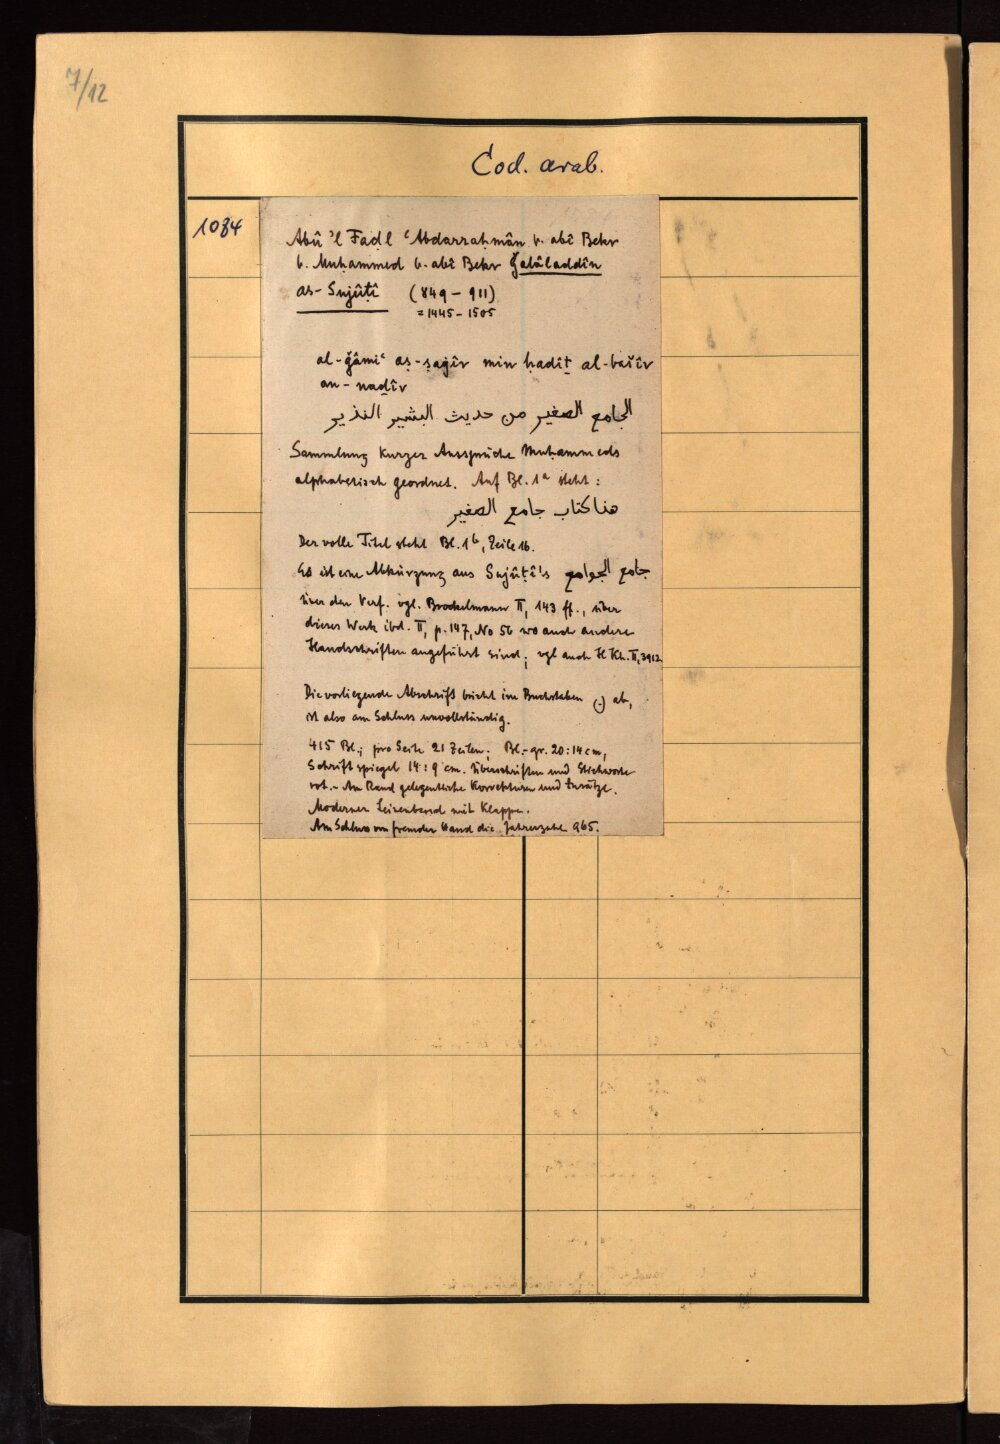 7/12
Cod. arab.
1084
Abû 'l Faḍl ʿAbdarraḥmân b. abî Bekr
b. Muḥammed b. abî Bekr Ǧalâladdîn
as-Sujûṭî (849-911)
= 1445-1505
al-ǧâmiʿ aṣ-ṣaġîr min ḥadîṯ al-bašîr
an-naḏîr
الجامع الصغير من حديث البشير النذير
Sammlung kurzer Aussprüche Muḥammeds
alphabetisch geordnet. Auf Bl. 1a steht:
هذا كتاب جامع الصغير
Der volle Titel steht Bl. 1b, Zeile 16.
Es ist eine Abkürzung aus Sujûṭî's جامع الجوامع
über den Verf. vgl. Brockelmann II, 143 ff., über
dieses Werk ibd. II, p. 147, No 56 wo auch andere
Handschriften angeführt sind; vgl auch H Kh. II, 3912
Die vorliegende Abschrift bricht im Buchstaben ن ab,
ist also am Schluss unvollständig.
415 Bl.; pro Seite 21 Zeilen; Bl.-gr. 20:14 cm,
Schriftspiegel 14:9 cm. Überschriften und Stichworte
rot. - Am Rand gelegentliche Korrekturen und Zusätze.
Moderner Leinenband mit Klappe.
Am Schluss von fremder Hand die Jahreszahl 965.